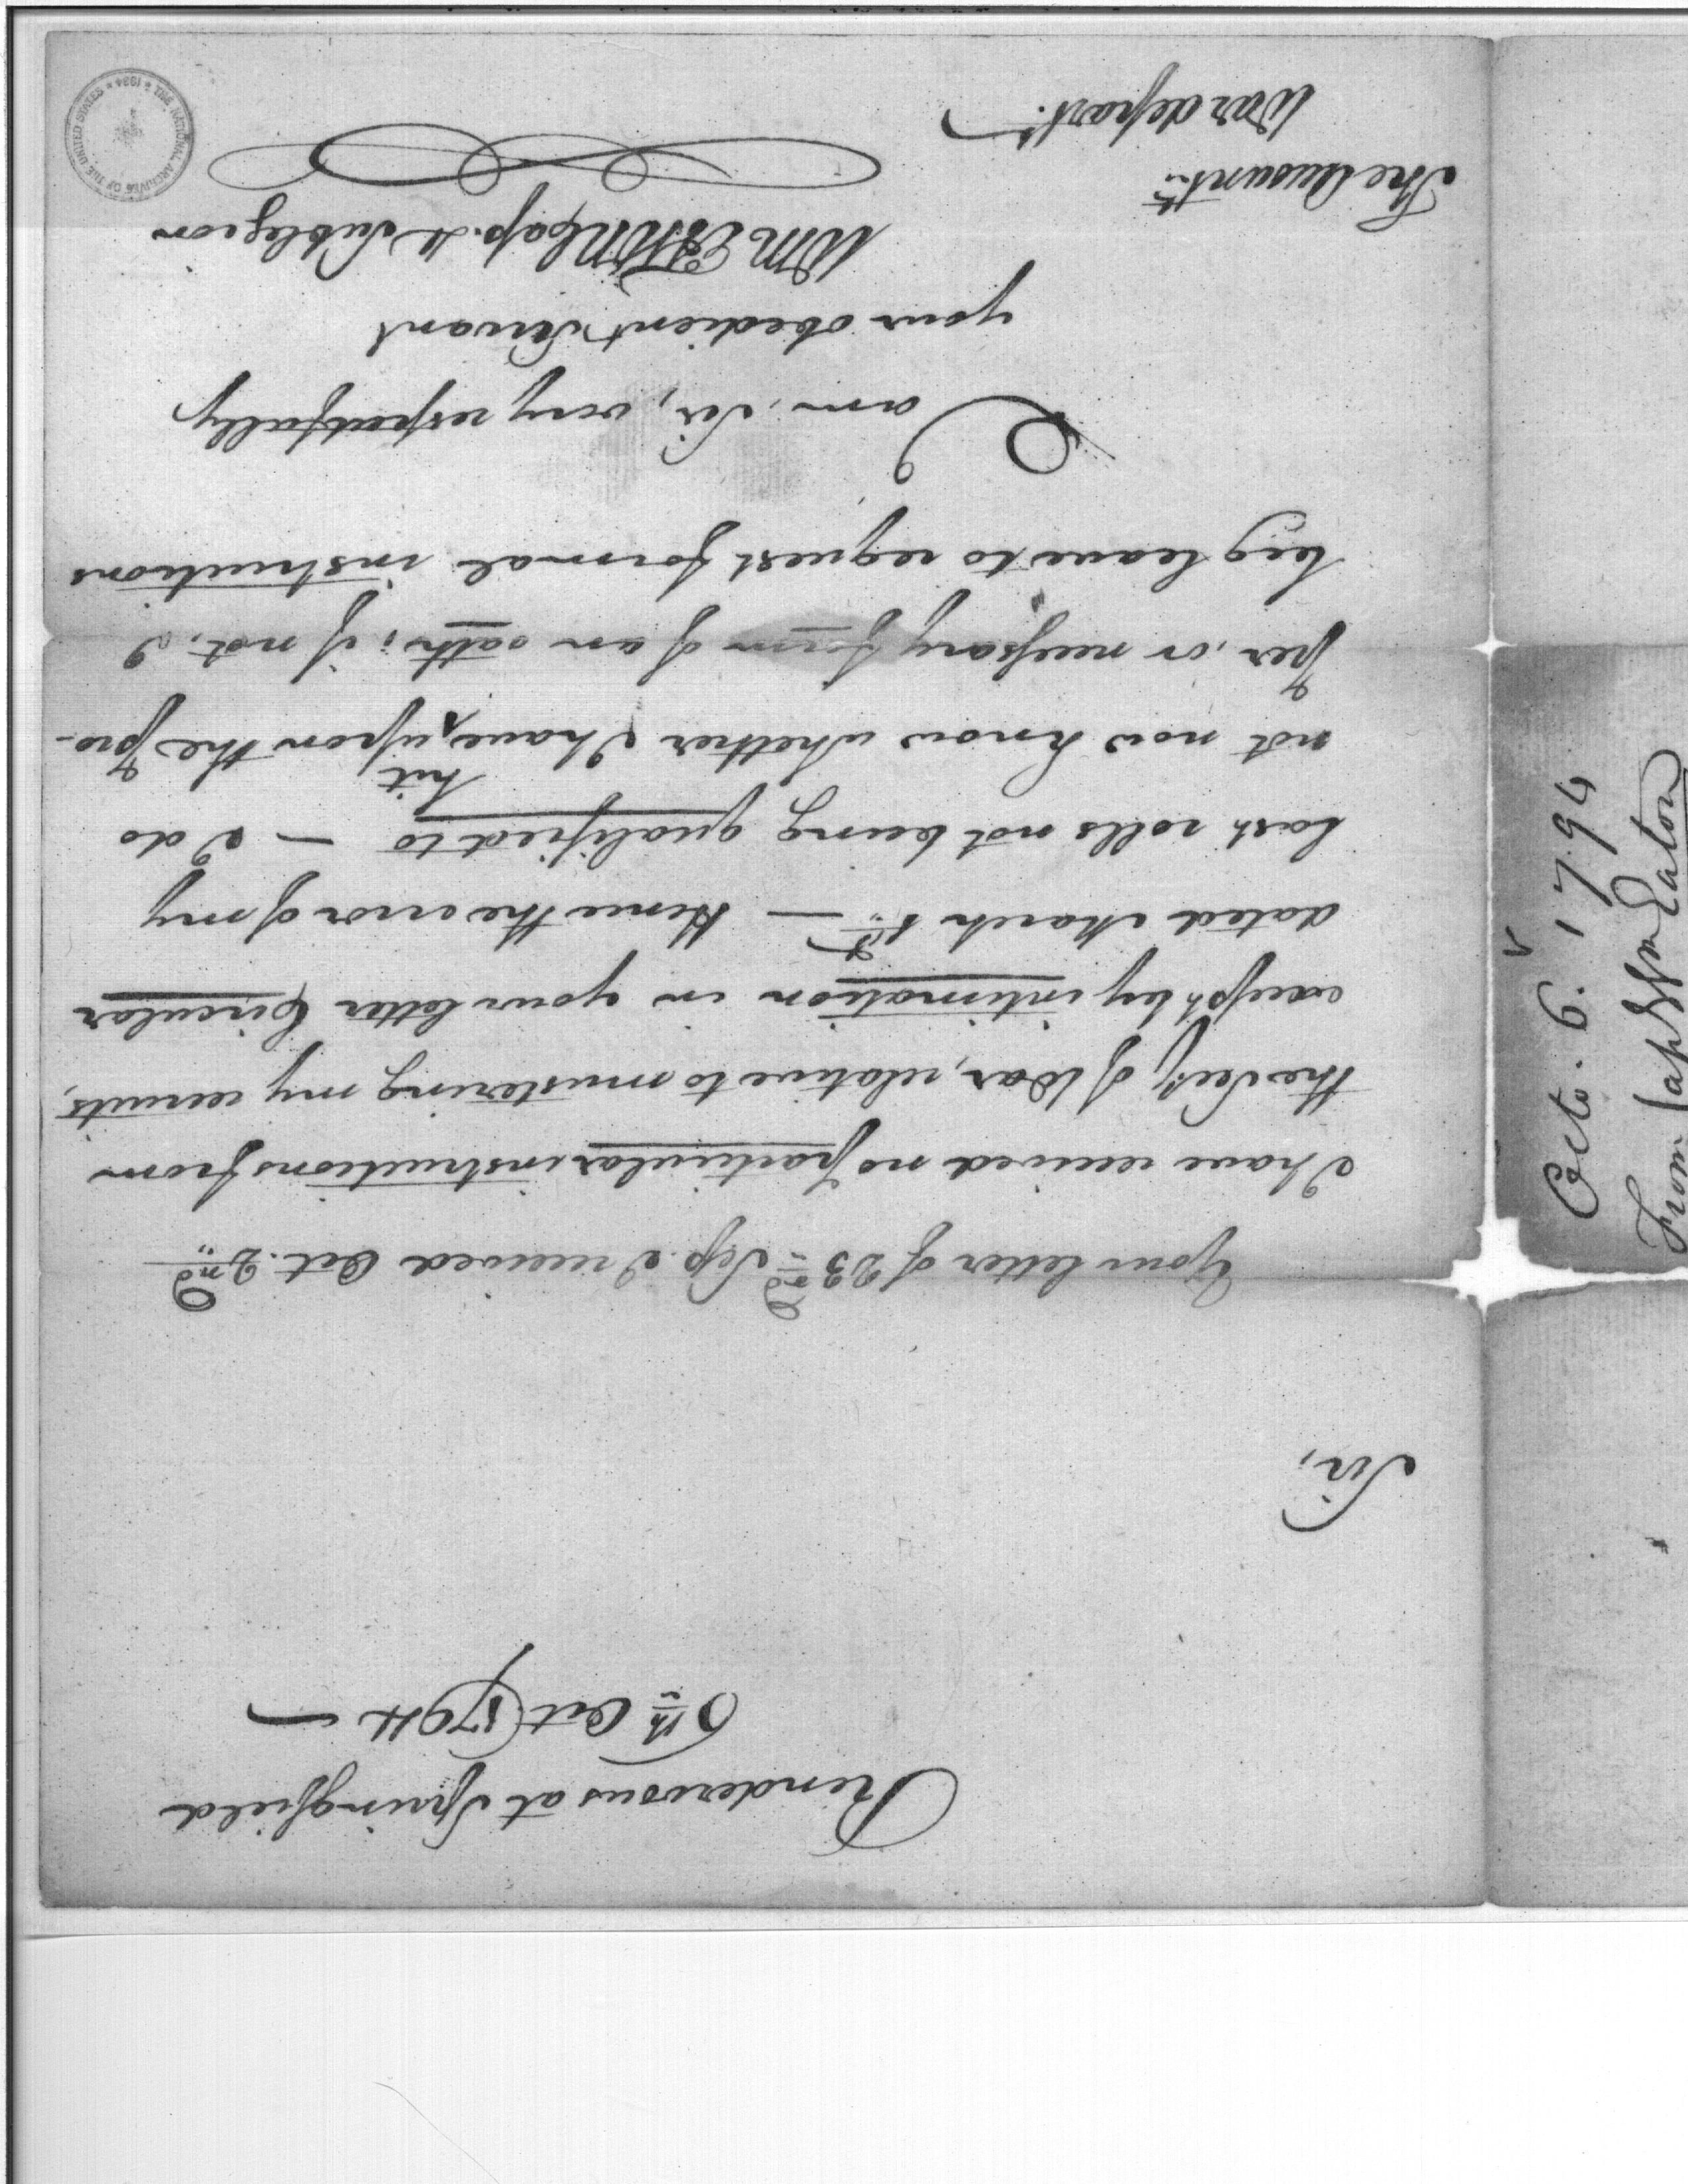 Rendezvous at Springfield
6th Oct. 1794 —
Sir,
Your letter of 23rd Sep. I received Oct. 2nd
I have received no particular instructions from
the Secy of War, relative to mustering my recruits,
except by intimation in your letter Circular
dated March 1st — Hence the error of my
last rolls not being qualified to — I do
not now know whether I have hit upon the pro-
per, or necessary form of an oath; if not, I
beg leave to request formal instructions
I am, Sir, very respectfully
your obedient Servant
Wm Eaton Cap. 4 Sublegion
The Accountt
War depart.
Octo. 6. 1794
From Cap Wm Eaton
THE NATIONAL ARCHIVES OF THE UNITED STATES * 1934 *